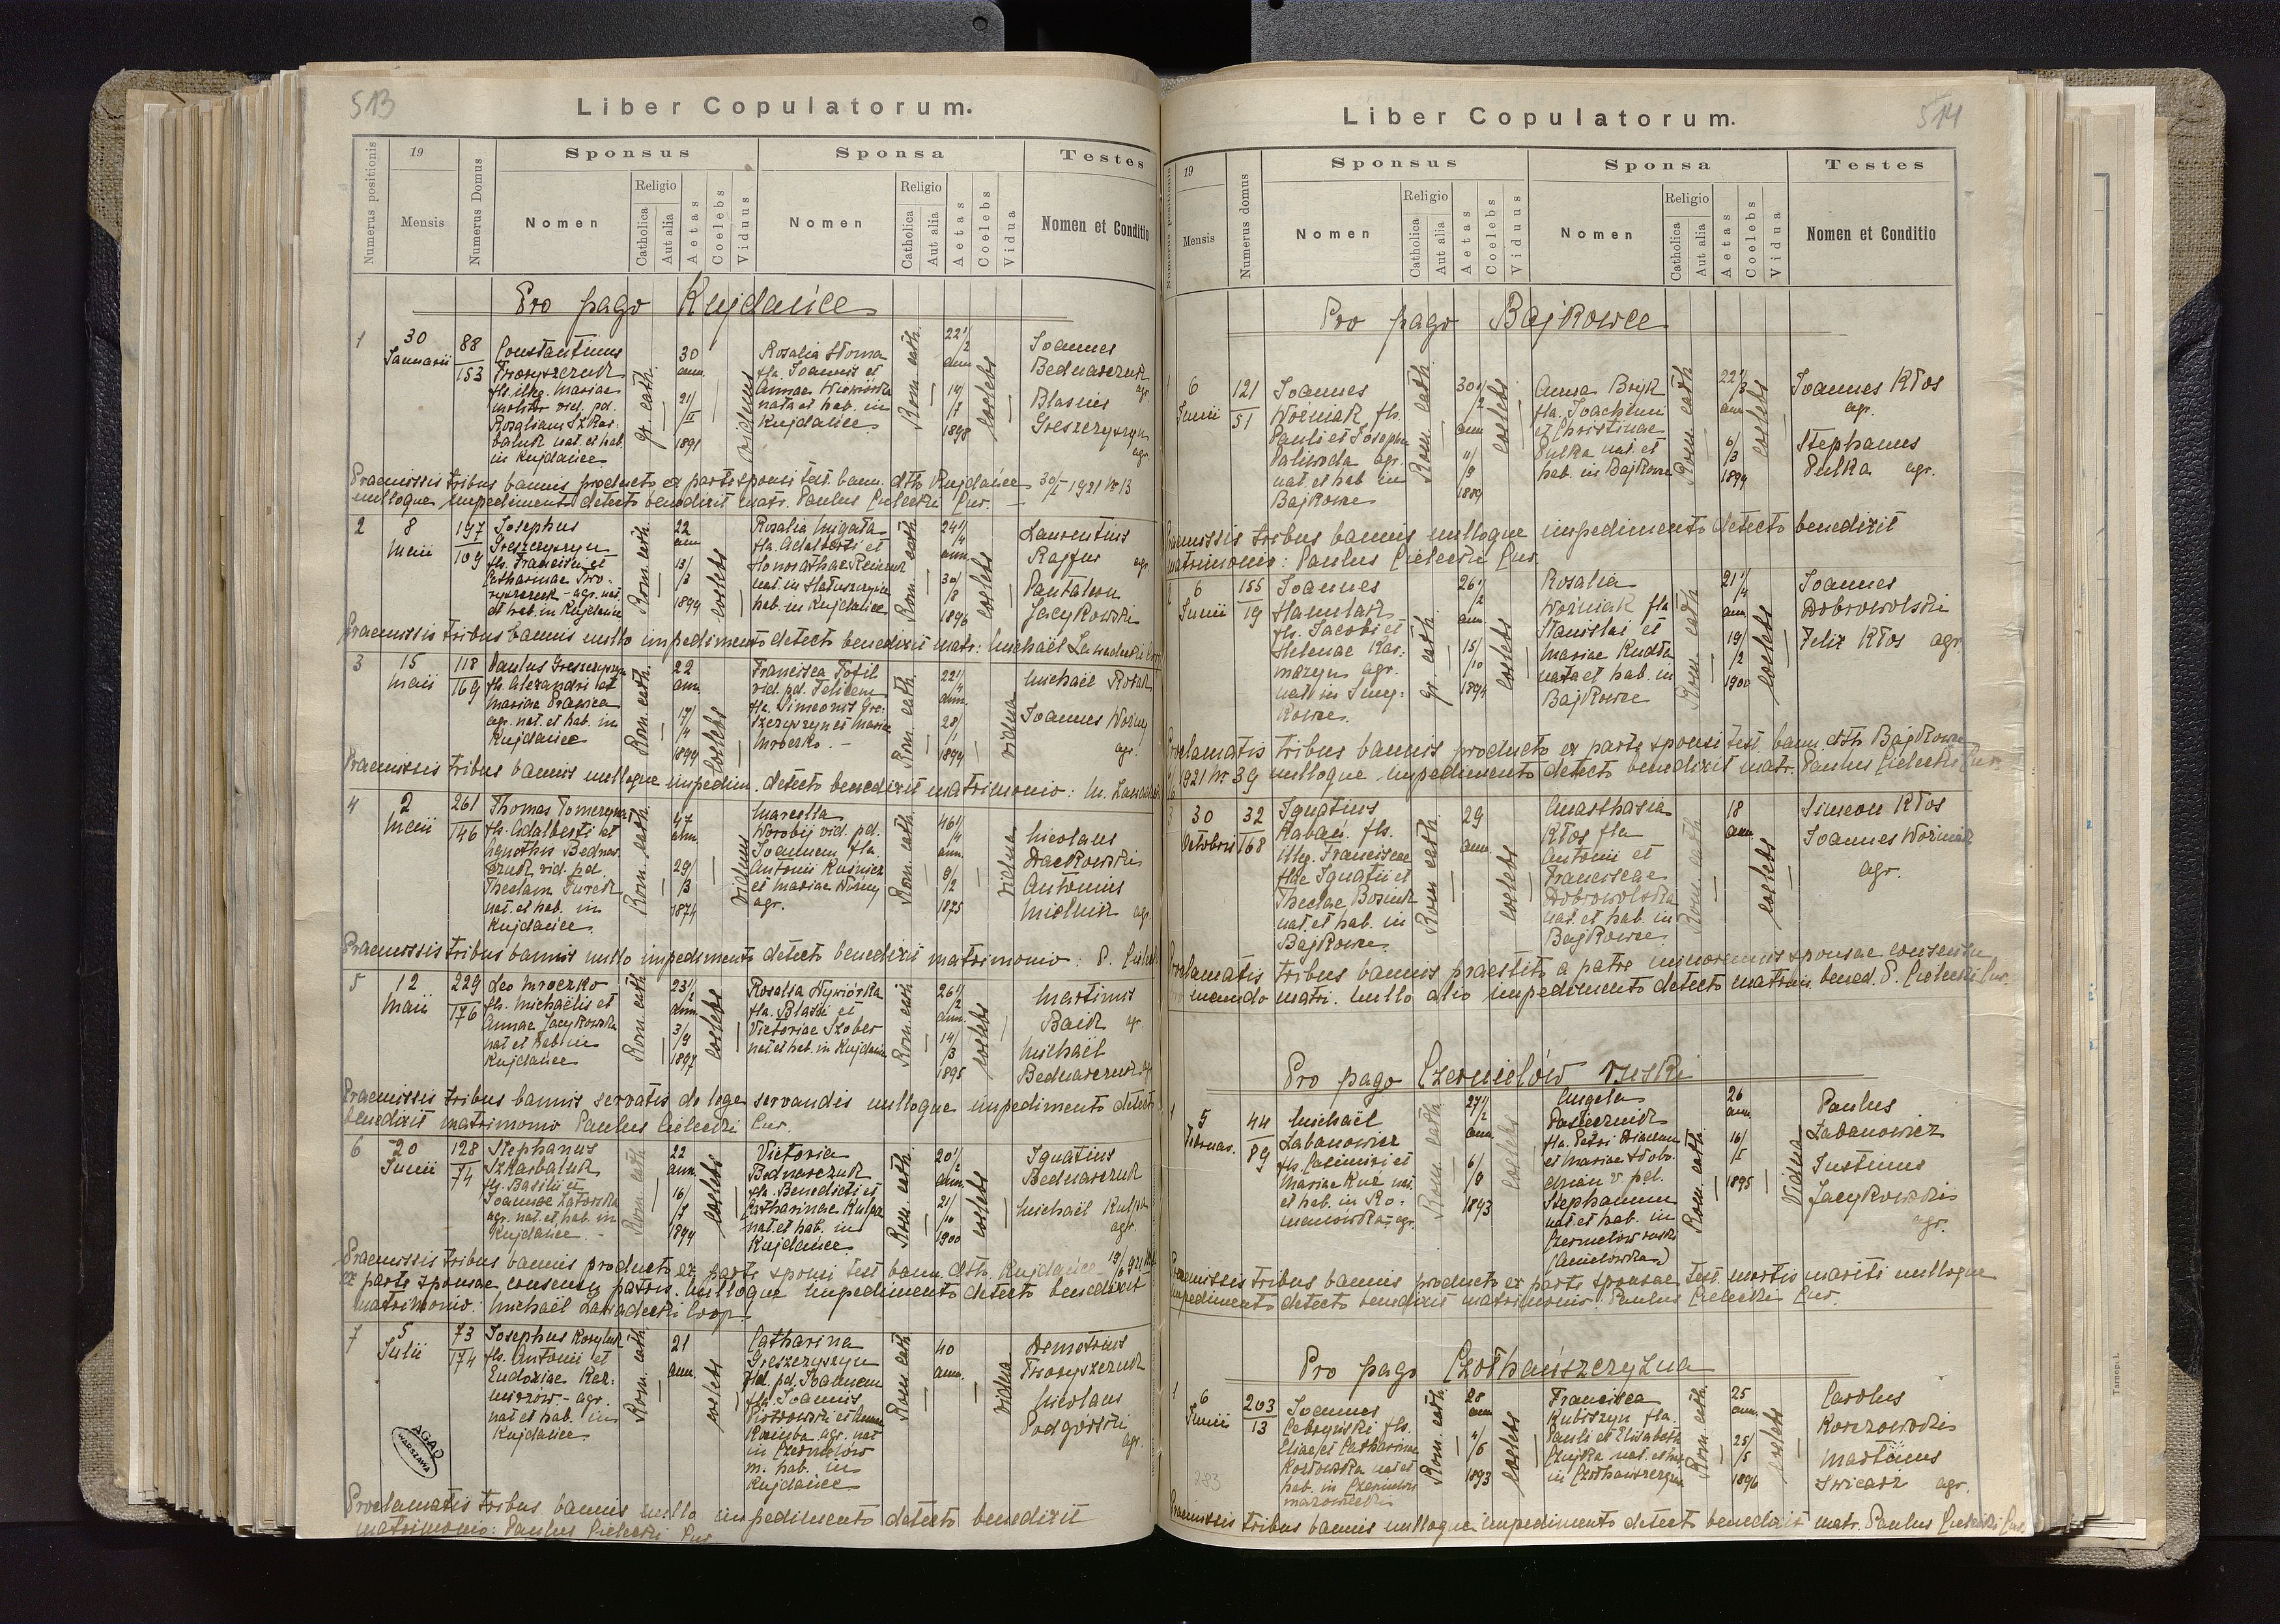 513
Liber Copulatorum.
Numerus positionis
19
Mensis
Numerus Domus
Sponsus
Nomen
Religio
Catholica
Aut alia
Aetas
Coelebs
Viduus
Sponsa
Nomen
Religio
Catholica
Aut alia
Aetas
Coelebs
Vidua
Testes
Nomen et Conditio
Pro pago Kujdańce
1
30
Januarii
88
153
Constantinus
Tworyszczuk
fls. illeg. Mariae
vid. pd.
Rosaliam Szkar-
baluk nat. et hab.
in Kujdańce
gr. cath.
30
ann.
21/
II
1891
viduus
Rosalia Słoma
fla. Joannis et
Annae Wiewiórka
nata et hab. in
Kujdańce
Rom. cath.
22 1/
2
ann
14/
7
1898
coelebs
Joannes
Bednarczuk
agr.
Blasius
Greszczyszyn
agr.
Praemissis tribus bannis producto ex parte sponsi test. bann. dtto Kujdańce 30/I 1921 № 13
nulloque impedimento detecto benedixit matr. Paulus Cielecki Cur.
2
8
Maii
197
109
Josephus
Greszczyszyn
fls. Francisci et
Catharinae Two-
ryszczuk - agr. nat.
et hab. in Kujdańce
Rom. cath.
22
ann
13/
3
1899
coelebs
Rosalia Migała
fla. Adalberti et
nat. in
hab. in Kujdańce
Rom. cath
24 1/
4
ann.
30/
8
1896
coelebs
Laurentius
Rajfur agr.
Pantaleon
Jacykowski
Praemissis tribus bannis nullo impedimento detecto benedixit matr: Michaël
3
15
Maii
118
169
Paulus Greszczyszyn
fls. Alexandri et
Mariae
agr. nat. et hab. in
Kujdańce
Rom. cath.
22
ann.
17/
4
1899
coelebs
Francisca Tofil
vid. pd. Felicem
fla. Simeonis Gre-
szczyszyn et Mariae
Mroczko. -
Rom. cath.
22 1/
4
ann.
28/
1
1899
vidua
Michaël
Joannes Woźny
agr.
Praemissis tribus bannis nulloque impedim. detecto benedixit matrimonio: M.
4
2
Maii
261
146
Thomas
fls. Adalberti et
Agnethis Bednar-
czuk vid. pd.
Theclam Turek
nat. et hab. in
Kujdańce.
Rom. cath.
47
ann.
29/
3
1874
viduus
Marcella
Worobij vid. pd.
Joannem fla.
Antonii Kuśnierz
et Mariae Woźny
agr.
Rom. cath.
46 1/
4
ann.
9/
2
1875
vidua
Nicolaus
Daćkowski
Antonius
Mielnik agr.
Praemissis tribus bannis nullo impedimento detecto benedixit matrimonio: P.
5
12
Maii
229
176
Leo Mroczko
fls. Michaëlis et
Annae Jacykowska
nat et hab in
Kujdańce
Rom. cath
23 1/
2
ann.
3/
9
1897
coelebs
Rosalia Wywiórka
fla. Blasii et
Victoriae Szober
nat et hab. in Kujdańce
Rom. cath
26 1/
2
ann.
14/
3
1895
coelebs
Martinus
Baik agr.
Michaël
Bednarczuk agr
Praemissis tribus bannis servatis de lege servandis nulloque impedimento detecto
benedixit matrimonio Paulus Cielecki Cur.
6
20
Junii
128
74
Stephanus
Szkarbaluk
fls. Basilii et
Joannae Zatorska
agr. nat. et hab. in
Kujdańce. -
Rom. cath
22
ann.
16/
7
1899
coelebs
Victoria
Bednarczuk
fla. Benedicti et
Catharinae Kulpa
nat. et hab. in
Kujdańce
Rom. cath.
20 1/
2
ann.
21/
10
1900
coelebs
Ignatius
Bednarczuk
Michaël Kulpa
agr.
Praemissis tribus bannis producto ex parte sponsi test bann. dtto. Kujdańce
ex parte sponsae consensu patris. Nulloque impedimento detecto benedixit
matrimonio: Michaël Zawadecki Coop.
7
5
Julii
73
174
Josephus
fls. Antonii et
Eudoxiae Kaz-
mirzów - agr.
nat et hab. in
Kujdańce.
Rom. cath.
21
ann.
coelebs
Catharina
Greszczyszyn
vid. pd. Joannem
fla. Joannis
Piotrowski et Annae
agr. nat
in Czernelow
m. hab. in
Kujdańce
Rom. cath
40
ann.
vidua
Demetrius
Tworyszczuk
Nicolaus
Podgórski
agr.
Proclamatis tribus bannis nullo impedimento detecto benedixit
matrimonio: Paulus Cielecki Cur
AGAD
WARSZAWA
514
Liber Copulatorum.
Numerus positionis
19
Mensis
Numerus domus
Sponsus
Nomen
Religio
Catholica
Aut alia
Aetas
Coelebs
Viduus
Sponsa
Nomen
Religio
Catholica
Aut alia
Aetas
Coelebs
Vidua
Testes
Nomen et Conditio
Pro pago Bajkowce
1
6
Junii
121
51
Joannes
Woźniak fls.
Pauli et Josepha
Paliwoda agr.
nat. et hab in
Bajkowce
Rom. cath
30 1/
2
ann
11/
9
1889
coelebs
Anna Bryk
fla. Joachimi
et Christinae
Pulka nat. et
hab. in Bajkowce
Rom. cath
22 1/
3
ann
6/
3
1899
coelebs
Joannes Kłos
agr.
Stephanus
Pulka agr.
Praemissis tribus bannis nulloque impedimento detecto benedixit
matrimonio: Paulus Cielecki Cur.
2
6
Junii
155
19
Joannes
Hamulak
fls. Jacobi et
Helenae Kar-
maryn agr.
nat. in Smy-
kowce.
gr. cath
26 1/
2
15/
10
1894
coelebs
Rosalia
Woźniak fla
Stanislai et
Mariae Kudła
nata et hab. in
Bajkowce
Rom. cath
21 1/
4
ann
19/
2
1900
coelebs
Joannes
Dobrowolski
Felix Kłos agr.
Proclamatis tribus bannis producto ex parte sponsi test. bann. dtto Bajkowce
1921 № 39 nulloque impedimento detecto benedixit matr. Paulus Cielecki Cur.
3
30
Octobris
32
168
Ignatius
Kabań. fls.
illeg. Franciscae
flae Ignatii et
Theclae Bosiuk
nat. et hab. in
Bajkowce.
Rom. cath.
29
ann.
coelebs
Anasthasia
Kłos fla
Antonii et
Franciscae
Dobrowolska
nat. et hab. in
Bajkowce.
Rom. cath
18
ann.
coelebs
Simeon Kłos
Joannes Woźniak
agr.
Proclamatis tribus bannis praestito a patre minorennis sponsae consensu
ineundo matri. nullo alio impedimento detecto matrim. bened. P. Cielecki Cur.
Pro pago Czernielów ruski
1
5
Februar.
44
89
Michaël
Łabanowicz
fls. Casimiri et
Mariae Kuć nat.
et hab. in Ro-
manówka agr.
Rom. cath
27 1/
2
ann
6/
9
1893
coelebs
Angela
Pasiecznik
fla. Petri
et Mariae Słobo-
dzian v. pd.
Stephanum
nat. et hab. in
Czernelow ruski
(Anielówka)
Rom. cath.
26
ann
16/
II
1895
Vidua
Paulus
Łabanowicz
Justinus
Jacykowski
agr.
Praemissis tribus bannis producto ex parte sponsae test. mortis mariti nulloque
impedimento detecto benedixit matrimonio: Paulus Cielecki Cur.
Pro pago Czołhańszczyzna
1
6
Junii
203
13
Joannes
Cebryński fls.
Eliae et Catharina
Kozłowska nat et
hab. in Czernielow
mazowiecki
Rom. cath.
28
ann
4/
6
1893
coelebs
Francisca
Kubiszyn fla.
Pauli et Elisabeth
nat. et hab
in Czołhańszczyzna
Rom. cath
25
ann.
25/
5
1896
coelebs
Carolus
Korzowski
Martinus
agr.
283
Praemissis tribus bannis nulloque impedimento detecto benedixit matr. Paulus Cielecki Cur.
Tarnopol.